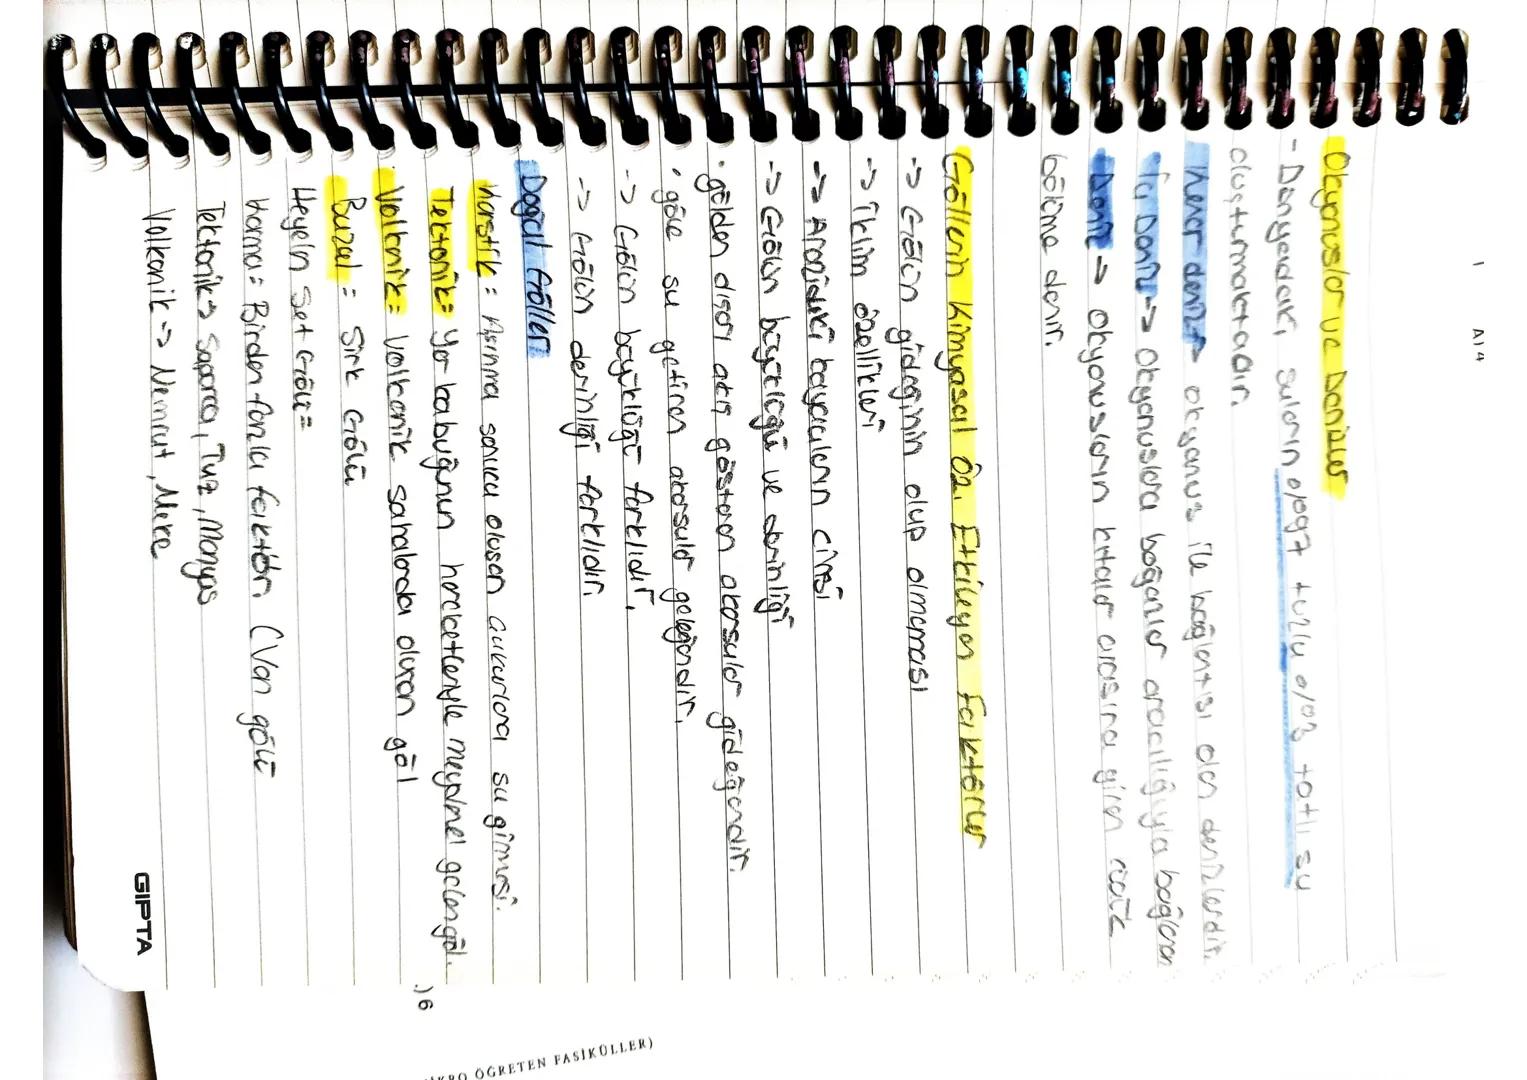 Okyanuslar ve Denizler
- Dünyadaki suların %97 tuzlu %03 tatlı su
oluşturmaktadır.
Kenar deniz -> okyanus ile bağlantısı olan denizlerdir.
İç Deniz -> Okyanuslara boğazlar aracılığıyla bağlanan
Deniz -> Okyanusların kıtalar arasına giren
bölüme denir.
Göllerin Kimyasal Öz. Etkileyen Faktörler
-> Gölün gideğinin olup olmaması
-> İklim özellikleri
-> Arazideki kayaçların cinsi
-> Gölün büyüklüğü ve derinliği
• gölden dışarı akış gösteren akarsular gideğendir.
• göle su getiren akarsular geleğendir.
-> Gölün büyüklüğü farklıdır.
-> Gölün derinliği farklıdır.
Doğal Göller
Karstik = Aşınma sonucu oluşan çukurlara su girmesi.
Tektonik = Yer kabuğunun hareketleriyle meydana gelen göl.
Volkanik = Volkanik sahalarda oluşan göl
Buzul = Sirk Gölü
Heyelan Set Gölü =
Karma = Birden fazla faktör. (Van gölü
Tektonik -> Sapanca, Tuz, Manyas
Volkanik -> Nemrut, Meke
GIPTA
1 A14
.) 6
ÖĞRETEN FASİKÜLLER)